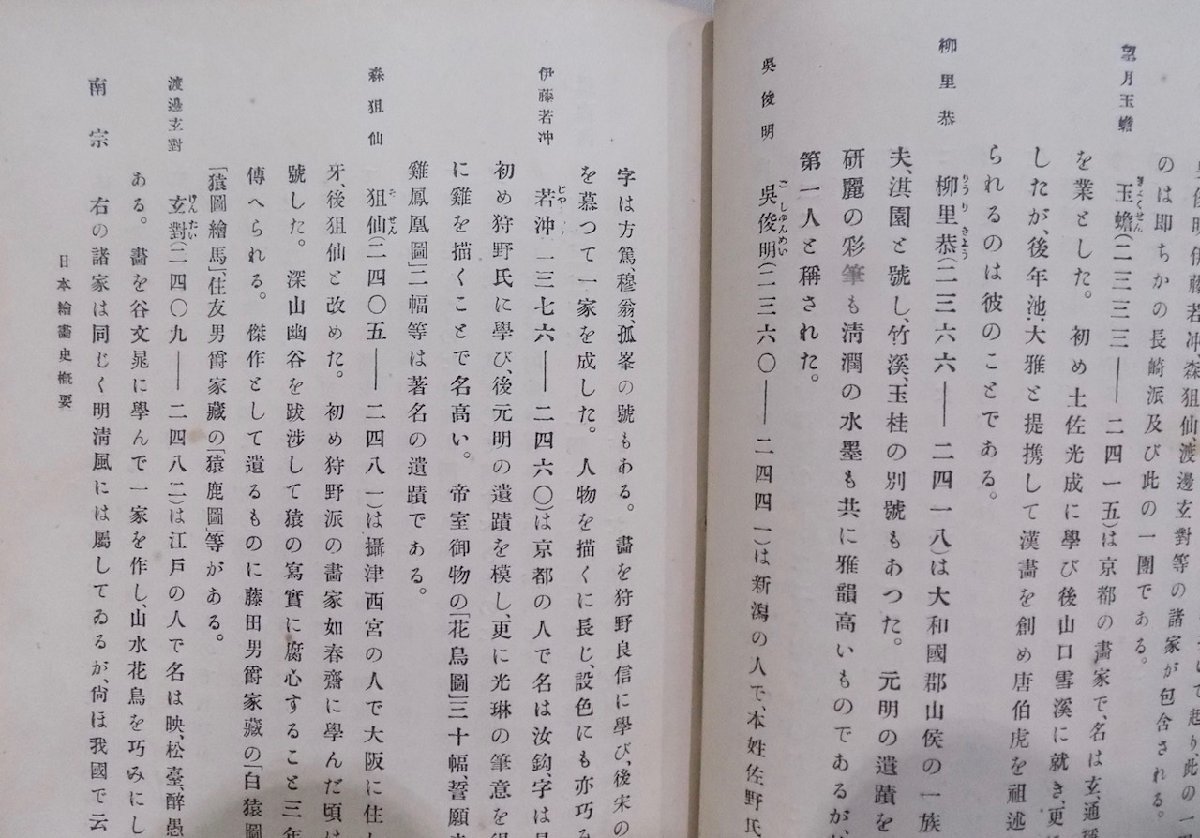 吳俊明伊藤若冲森狙仙渡邊玄對等の諸家が包含される。
のは即ちかの長崎派及び此の一團である。
望月玉蟾
玉蟾(二三三三—二四一五)は京都の畫家で、名は玄、通稱
を業とした。初め土佐光成に學び後山口雪溪に就き、更に
したが、後年池大雅と提携して漢畫を創め唐伯虎を祖述
られるのは彼のことである。
柳里恭
柳里恭(二三六六—二四一八)は大和國郡山侯の一族
夫、淇園と號し、竹溪、玉桂の別號もあつた。元明の遺蹟を
硏麗の彩筆も淸潤の水墨も共に雅韻高いものであるが
第一人と稱された。
吳俊明
吳俊明(二三六〇—二四四一)は新潟の人で、本姓佐野氏
字は方篤、穆翁、孤峯の號もある。畫を狩野良信に學び、後宋の
を慕つて一家を成した。人物を描くに長じ、設色にも亦巧み
伊藤若冲
若冲 一三七六—二四六〇)は京都の人で名は汝鈞、字は
初め狩野氏に學び、後元明の遺蹟を模し、更に光琳の筆意を得
に雞を描くことで名高い。帝室御物の「花鳥圖」三十幅、誓願
雞鳳凰圖」二幅等は著名の遺蹟である。
森狙仙
狙仙(二四〇五—二四八一)は攝津西宮の人で大阪に住し
牙、後狙仙と改めた。初め狩野派の畫家如春齋に學んだ頃は
號した。深山幽谷を跋涉して猿の寫實に腐心すること三年
傳へられる。傑作として遺るものに藤田男爵家藏の「白猿圖
「猿圖繪馬」、住友男爵家藏の「猿鹿圖」等がある。
渡邊玄對
玄對(二四〇九—二四八二)は江戸の人で名は映、松臺、醉愚
ある。畫を谷文晁に學んで一家を作し、山水花鳥を巧みにし
南宗
右の諸家は同じく明淸風には屬してゐるが、尙ほ我國で云
日本繪畫史槪要